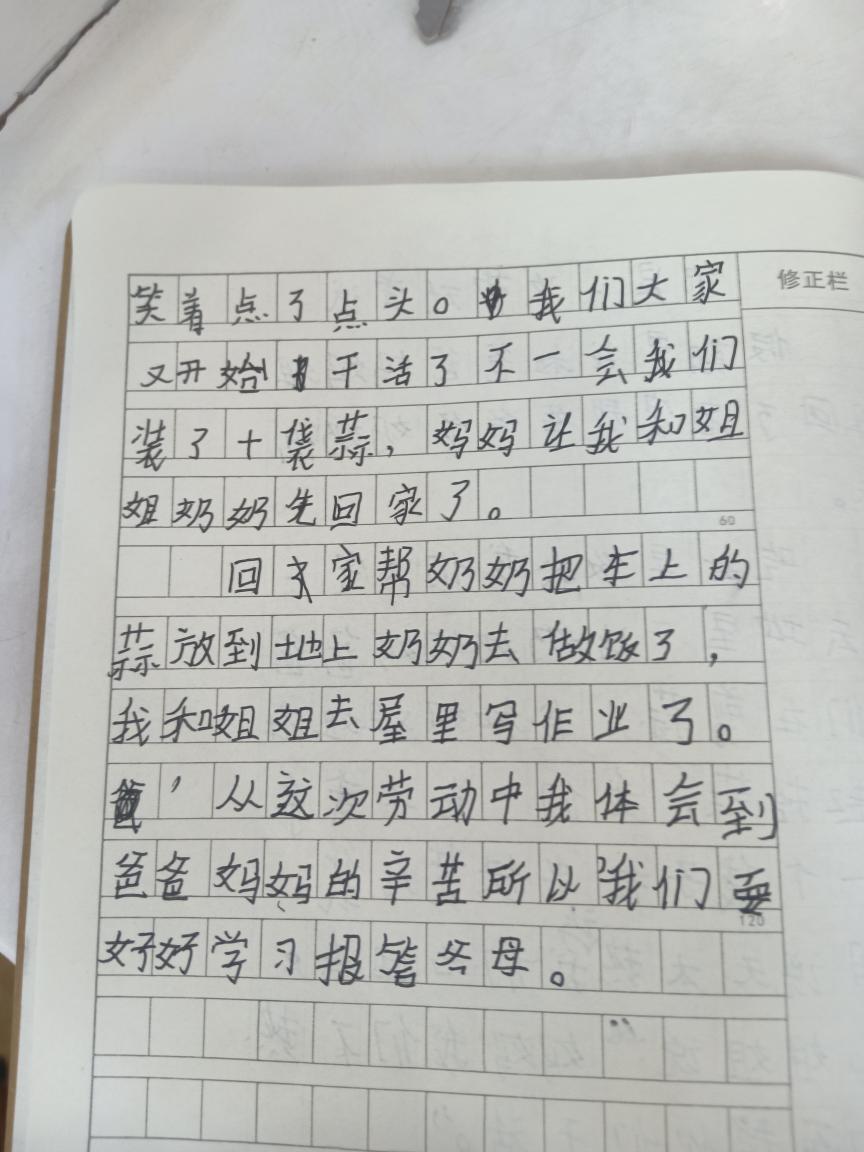 修正栏
笑着点了点头。我们大家
又开始干活了不一会我们
装了十袋蒜，妈妈让我和姐
姐奶奶先回家了。
60
回家帮奶奶把车上的
蒜放到地上奶奶去做饭了，
我和姐姐去屋里写作业了。
，从这次劳动中我体会到
爸爸妈妈的辛苦所以我们要
120
好好学习报答父母。